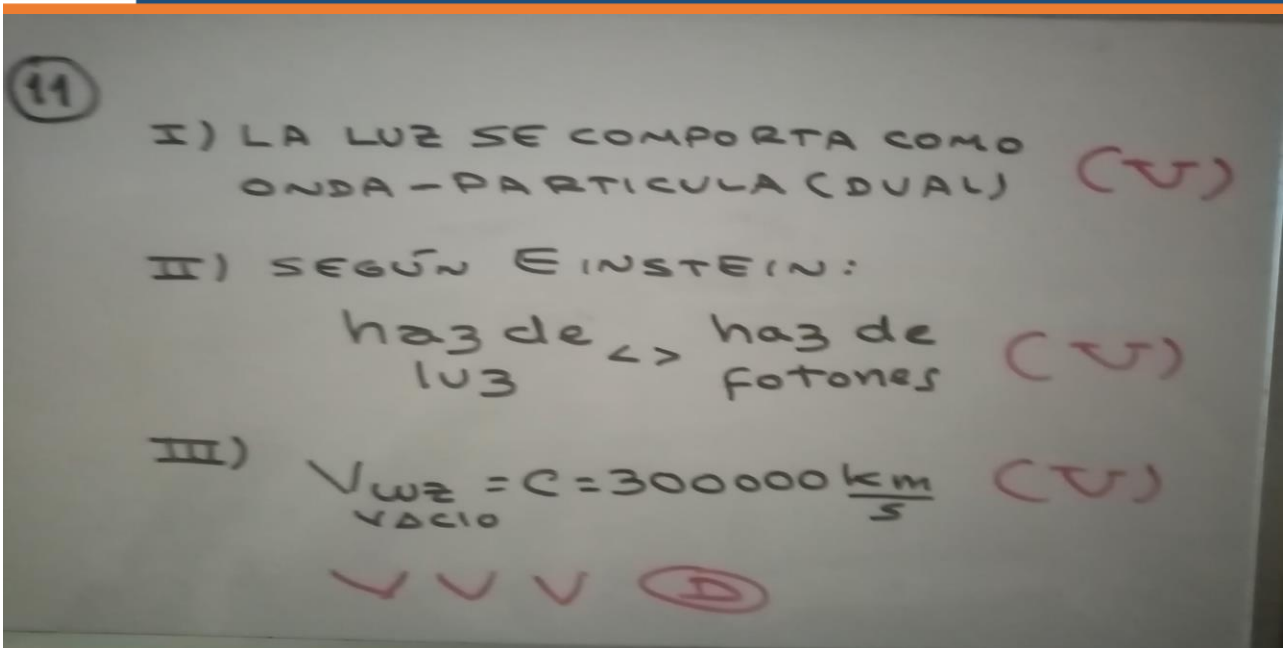 11
I) LA LUZ SE COMPORTA COMO
ONDA-PARTICULA (DUAL) (V)
II) SEGÚN EINSTEIN:
haz de <> haz de (V)
luz fotones
III) Vluz = C = 300000 km/s (V)
VACIO
V V V D